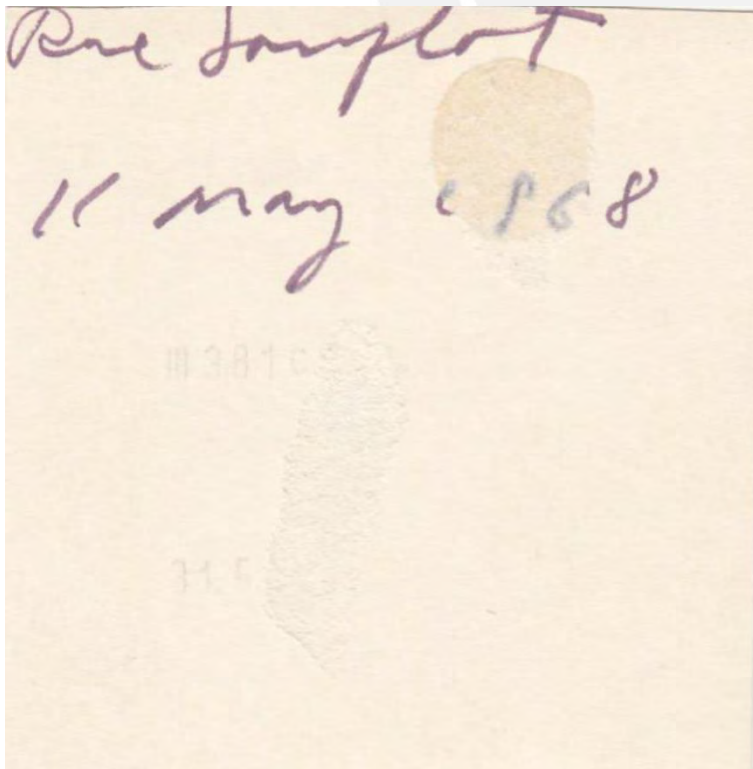 Rue Souflot
11 May 1968
M3816